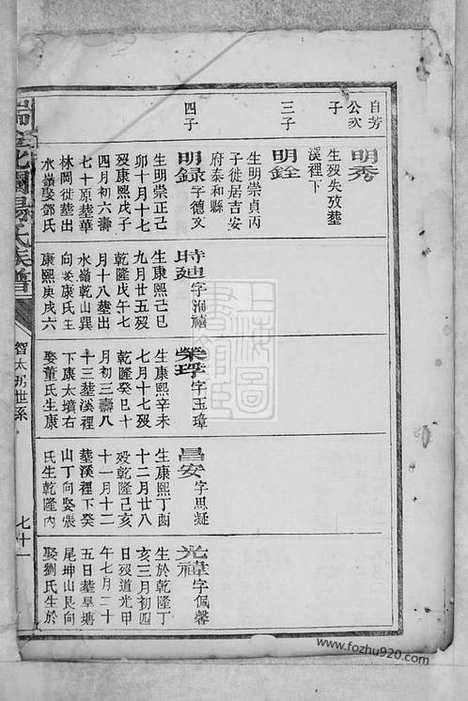 自芳
公次
子
明秀
生歿失攷塟
溪裡下
三子
明銓
生明崇貞丙
子徙居吉安
府泰和縣
四子
明録字德文
生明崇禎正己
卯十月十七
歿康熙戊子
四月初六壽
七十原塟華
林岡徙塟出
水嶺娶鄧氏
時廸字
生康熙己巳
九月廿五歿
乾隆戊午七
月十八塟出
水嶺乾山巽
向娶康氏生
康熙庚戌六
榮玶字玉璋
生康熙辛未
七月十七歿
乾隆癸巳十
月初三壽八
十三塟溪裡
下康太墳右
娶董氏生康
昌安字思凝
生康熙丁酉
十二月廿八
歿乾隆己亥
十一月十二
塟溪裡下癸
山丁向娶張
氏生乾隆內
光瑋字佩馨
生於乾隆丁
亥三月初四
日歿道光甲
午七月二十
五日塟旱塘
尾坤山艮向
娶劉氏生於
氏族譜
智太房世系
七十一
www.fozhu920.com